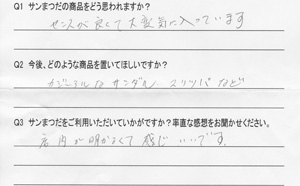 Q1 サンまつだの商品をどう思われますか?
センスが良くて大変気に入っています
Q2 今後、どのような商品を置いてほしいですか?
カジュアルなサンダル、スリッパなど
Q3 サンまつだをご利用いただいていかがですか?率直な感想をお聞かせください。
店内が明るくて感じいいです。